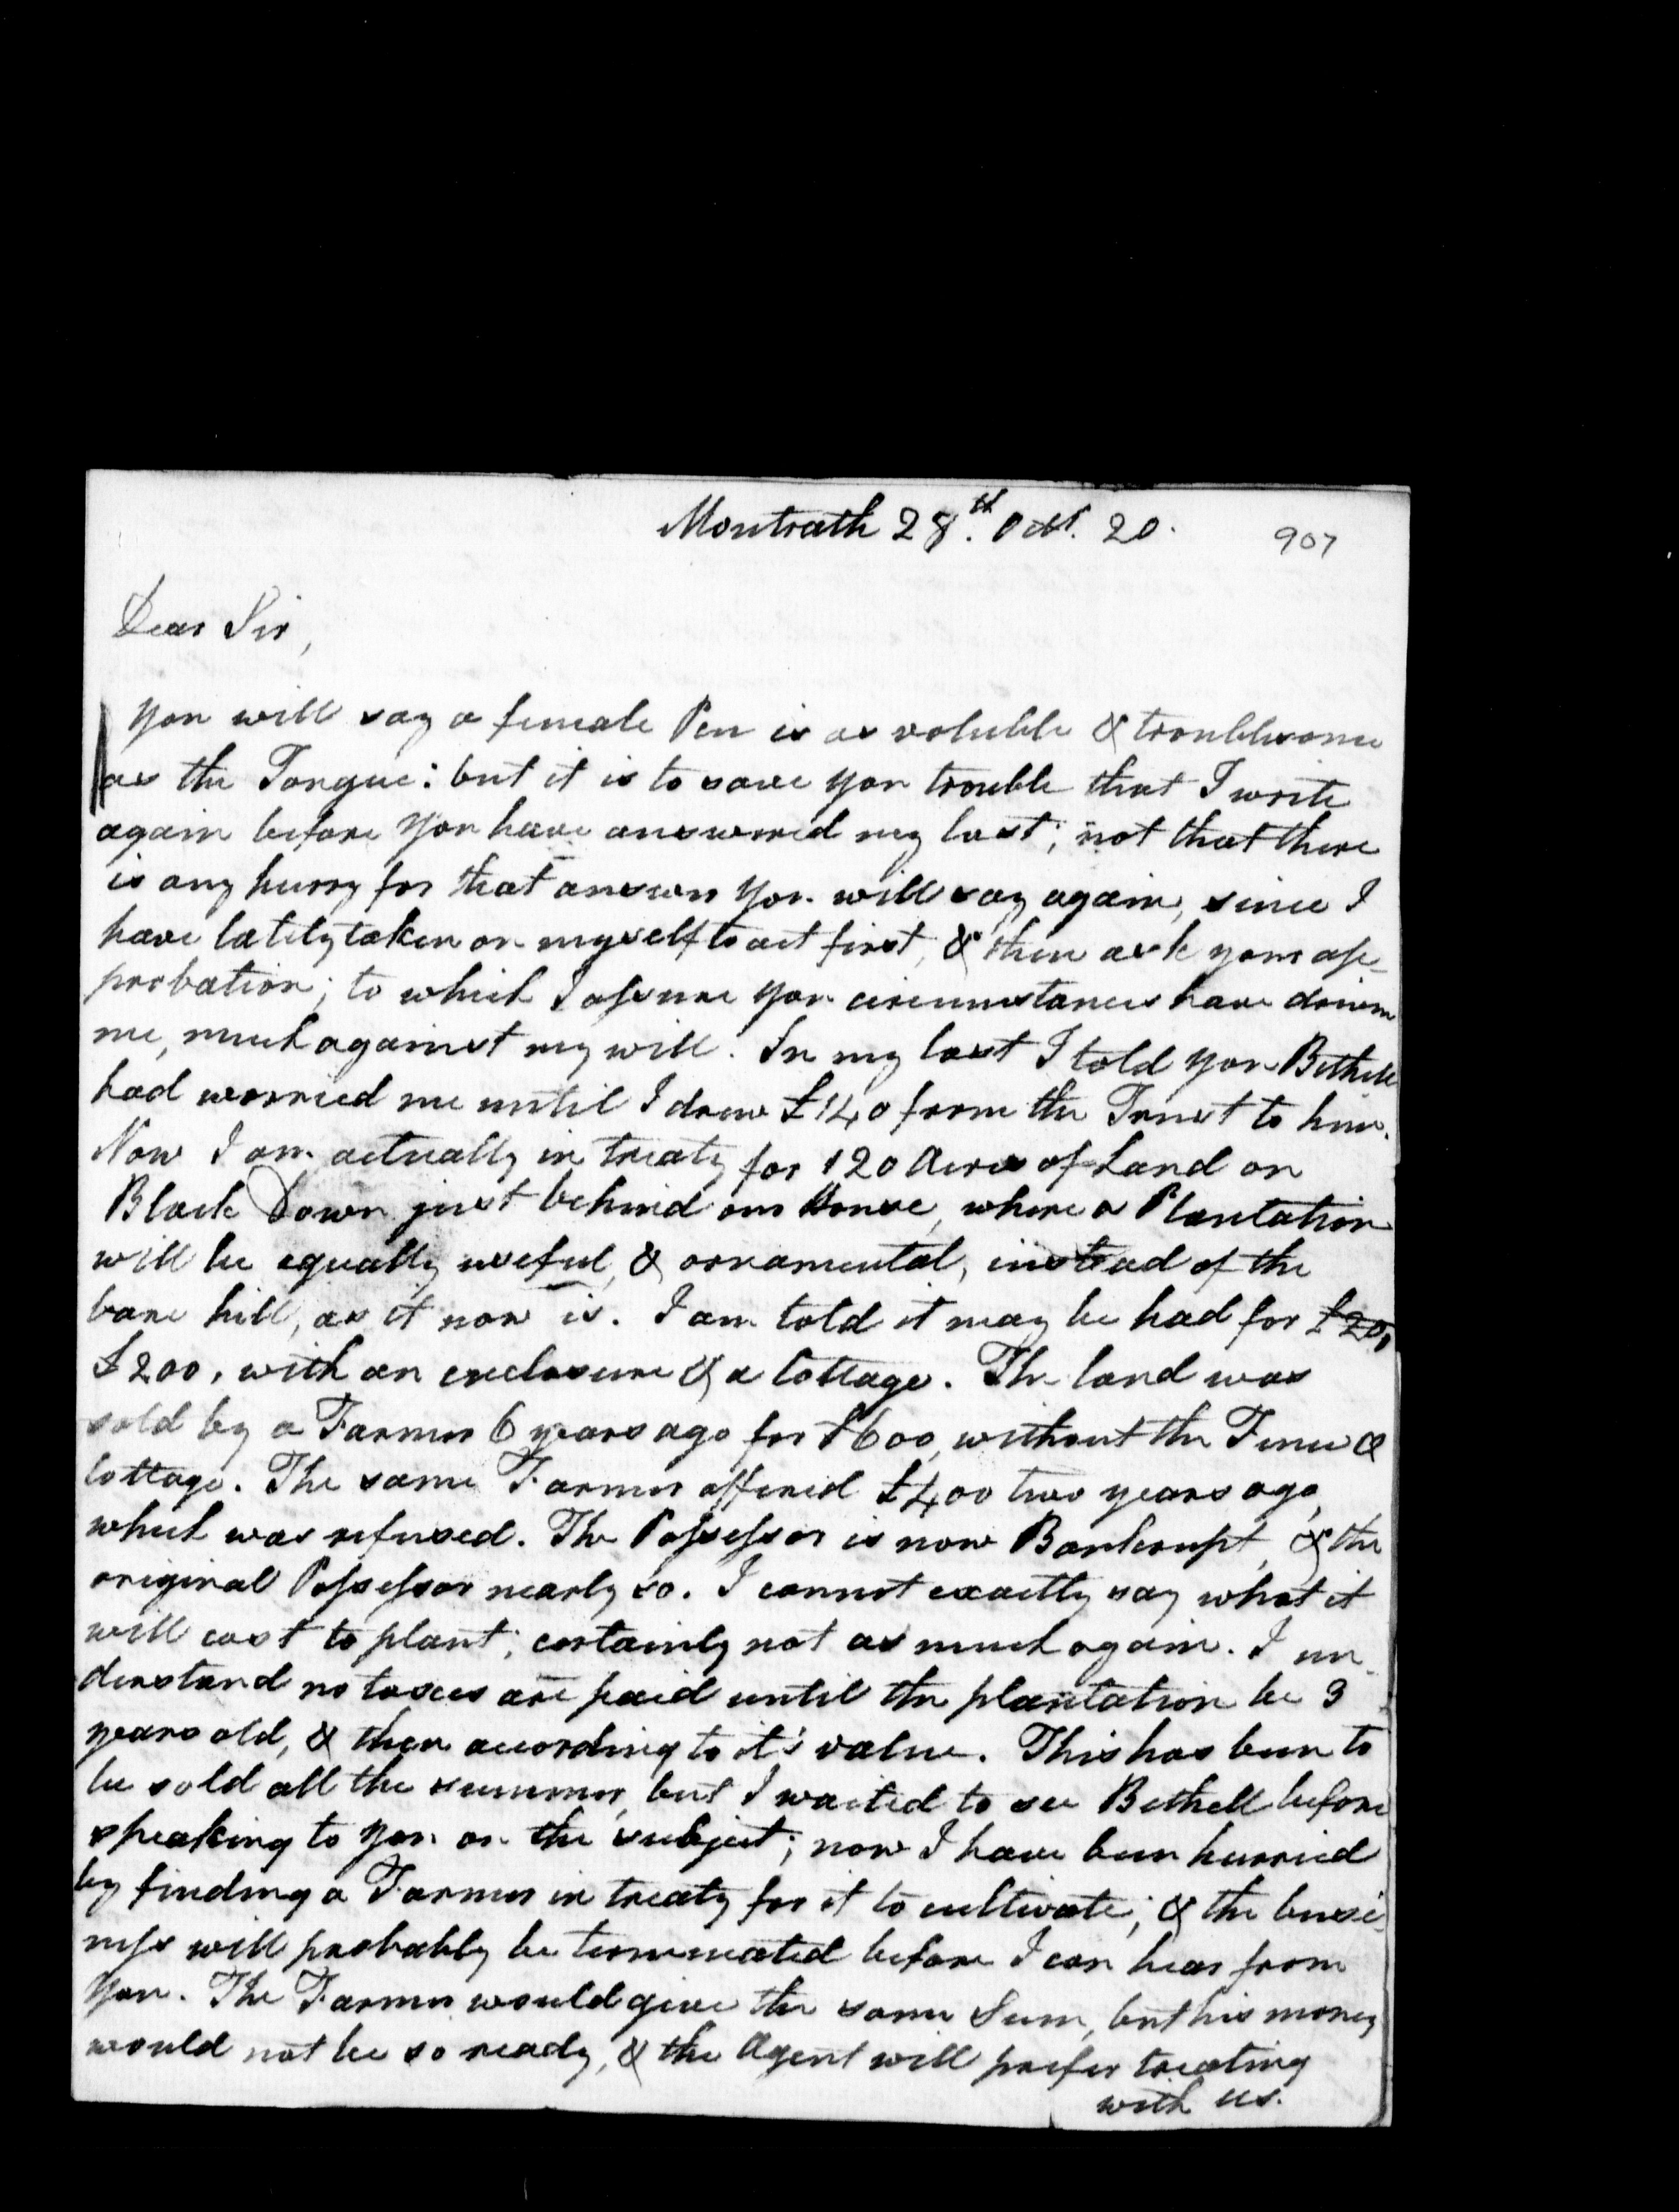 Montrath 28.th Octr. 20.
907
Dear Sir,
You will say a female Pen is as voluble & troublesome
as the Tongue: but it is to save You trouble that I write
again before You have answered my last; not that there
is any hurry for that answer You will say again, since I
have lately taken on myself to act first, & then ask your ap-
probation; to which I assure You circumstances have driven
me, much against my will. In my last I told You Bethell
had worried me until I drew £140 from the Trust to him.
Now I am actually in treaty for 120 Acres of Land on
Black Down just behind our House, where a Plantation
will be equally useful, & ornamental, instead of the
bare hill, as it now is. I am told it may be had for £20,
£200, with an enclosure & a Cottage. The land was
sold by a Farmer 6 years ago for £600, without the Fence &
Cottage. The same Farmer offered £400 two years ago,
which was refused. The Possessor is now Bankrupt, & the
original Possessor nearly so. I cannot exactly say what it
will cost to plant; certainly not as much again. I un-
derstand no taxes are paid until the plantation be 3
years old, & then according to it's value. This has been to
be sold all the summer, but I waited to see Bethell before
speaking to You on the subject; now I have been hurried
by finding a Farmer in treaty for it to cultivate; & the busi-
ness will probably be terminated before I can hear from
You. The Farmer would give the same Sum, but his money
would not be so ready, & the Agent will prefer treating
with us.